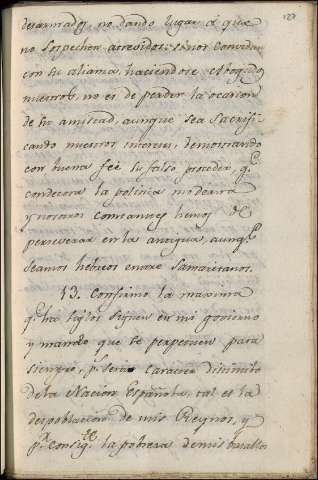 desarmados, no dando lugar à que
no sospechen atrevidos; si nos convidan
con su aliansa, haciendose Abogados
nuestros, no es de perder la ocasion
de su amistad, aunque sea sacrifi-
cando nuestros intereses, demostrando
con buena feè su falso proceder, q.e
condecora la politica moderna
y nosotros constantes hemos de
perseverar en la antigua, aunq.e
seamos hebreos entre Samaritanos.
13. Confirmo la maxima
q.e ha siglos siguen en mi govierno
y mando que se perpetuen para
siempre, p.r ser caracter distintibo
de la Nacion Española, tal es la
despoblacion de mis Reynos, y
p.r consig.te la pobreza de mis basallos